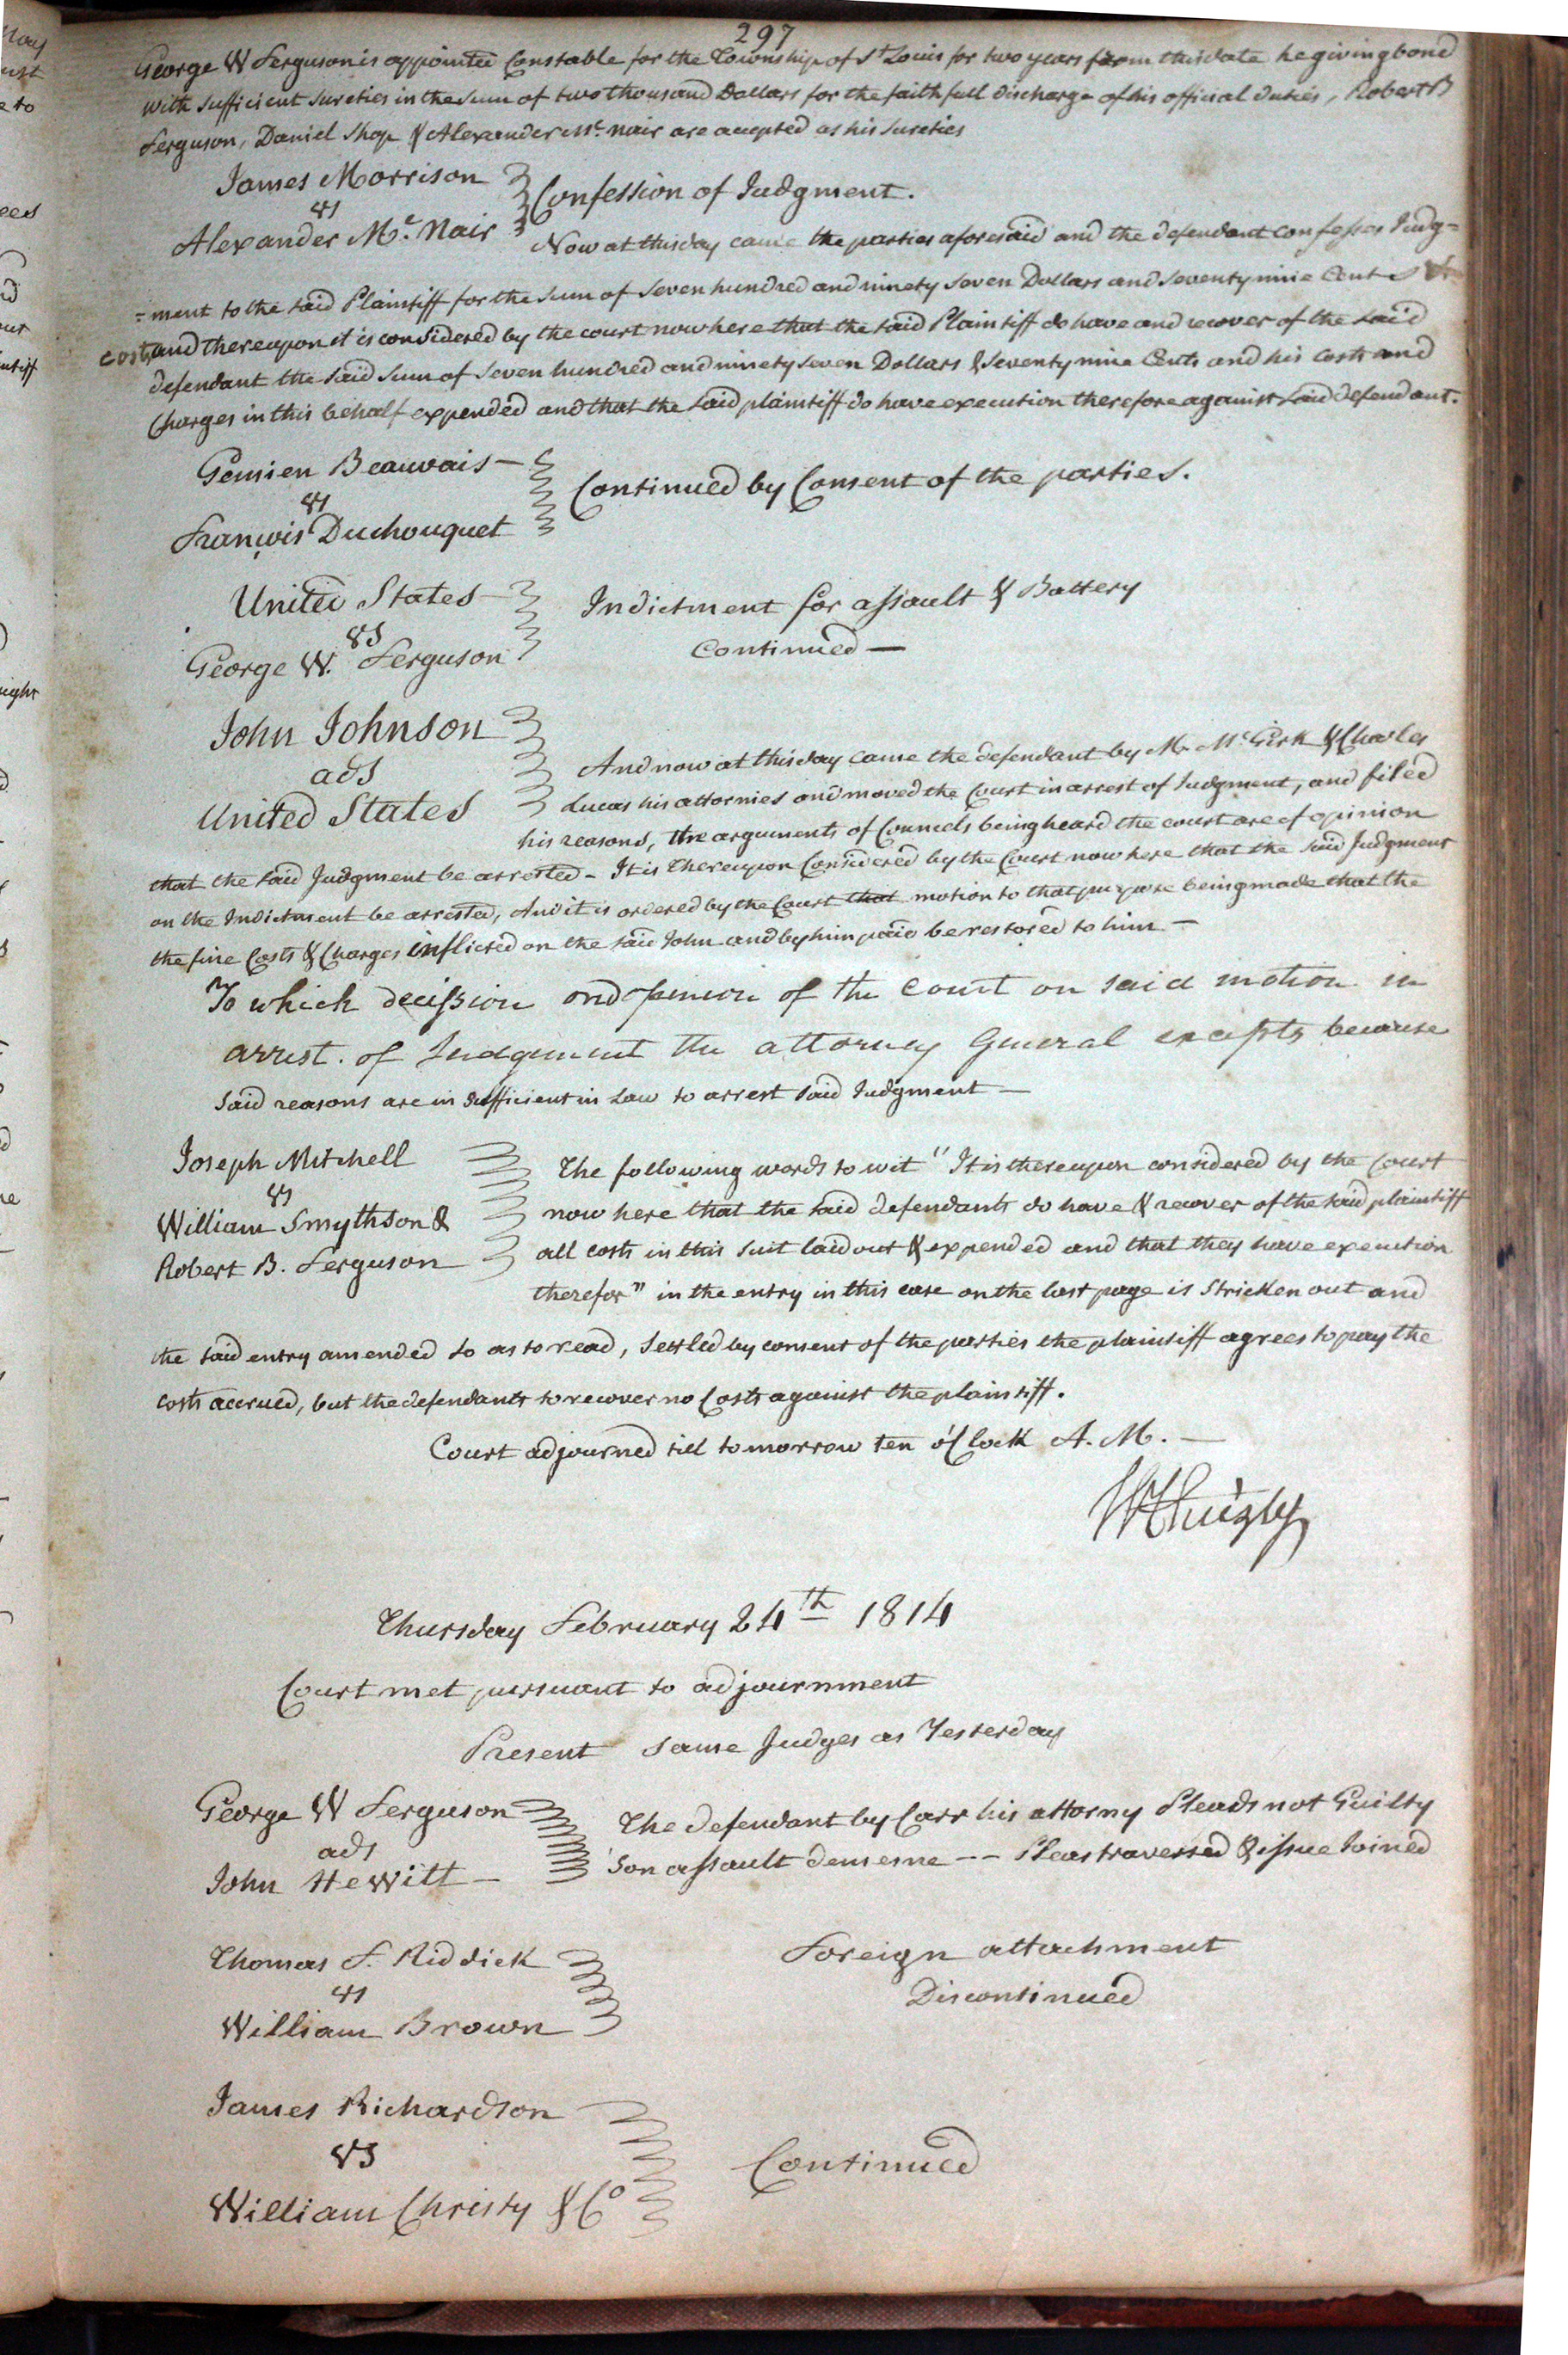 297
George W Ferguson is appointed Constable for the Township of St Louis for two years from this date he giving bond
with sufficient sureties in the sum of two thousand Dollars for the faithfull discharge of his official duties, Robert B
Ferguson, Daniel Shop & Alexander Mc. Nair are accepted as his sureties
James Morrison
vs
Alexander Mc. Nair
Confession of Judgment.
Now at this day came the parties aforesaid and the defendant confesses Judg=
=ment to the said Plaintiff for the sum of Seven hundred and ninety Seven Dollars and Seventy nine Cents &
costs and thereupon it is considered by the court now here that the said Plaintiff do have and recover of the said
defendant the said sum of Seven hundred and ninety Seven Dollars & Seventy nine Cents and his costs and
Charges in this behalf expended and that the said plaintiff do have execution therefore against said defendant.
Gemien Beauvais
vs
François Duchouquet
Continued by Consent of the parties.
United States
vs
George W. Ferguson
Indictment for assault & Battery
Continued —
John Johnson
ads
United States
And now at this day came the defendant by Mr. McGirk & Charles
Lucas his attornies and moved the Court in arrest of Judgment, and filed
his reasons, the arguments of Councels being heard the court are of opinion
that the said Judgment be arrested - It is thereupon Considered by the Court now here that the said Judgment
on the Indictment be arrested, And it is ordered by the Court that motion to that purpose being made that the
the fine Costs & Charges inflicted on the said John and by him paid be restored to him —
To which decission and opinion of the Court on said motion in
arrest. of Judgement the attorney General excepts because
said reasons are in sufficient in Law to arrest said Judgment —
Joseph Mitchell
vs
William Smythson &
Robert B. Ferguson
The following words to wit "It is thereupon considered by the Court
now here that the said defendants do have & recover of the said plaintiff
all costs in this suit laid out & expended and that they have execution
therefor" in the entry in this case on the last page is Stricken out and
the said entry amended so as to read, Settled by consent of the parties the plaintiff agrees to pay the
costs accrued, but the defendants to recover no Costs against the plaintiff.
Court adjourned till tomorrow ten o'Clock A. M. —
Thursday February 24th 1814
Court met pursuant to adjournment
Present same Judges as Yesterday
George W Ferguson
ads
John Hewitt —
The defendant by Carr his attorny Pleads not Guilty
Son assault demesne -- Pleas traversed & issue Joined
Thomas F. Riddick
vs
William Brown
Foreign attachment
Discontinued
James Richardson
vs
William Christy & Co
Continued